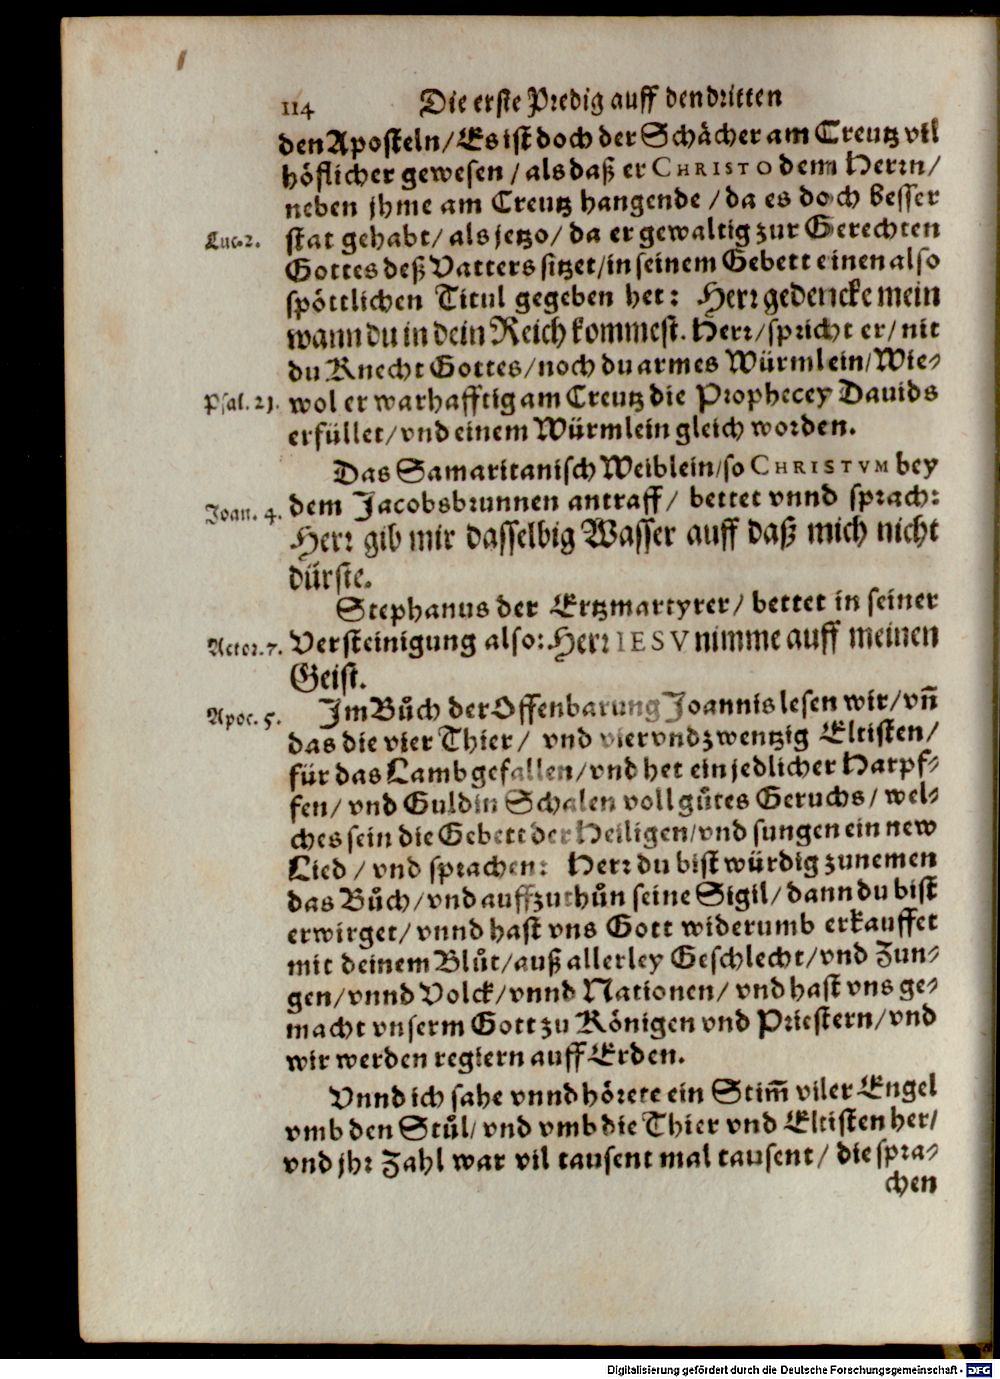 114 Die erste Predig auff den dritten
den Aposteln/ Es ist doch der Schächer am Creutz vil
höflicher gewesen / als daß er CHRISTO dem Herrn/
neben jhme am Creutz hangende / da es doch besser
Luc. 2. stat gehabt/ als jetzo/ da er gewaltig zur Gerechten
Gottes deß Vatters sitzet/ in seinem Gebett einen also
spöttlichen Titul gegeben het: Herr gedencke mein
wann du in dein Reich kommest. Herr/ spricht er/ nit
du Knecht Gottes/ noch du armes Würmlein/ Wie-
Psal. 21. wol er warhafftig am Creutz die Prophecey Dauids
erfüllet/ vnd einem Würmlein gleich worden.
Das Samaritanisch Weiblein/ so CHRISTVM bey
Joan. 4. dem Jacobsbrunnen antraff/ bettet vnnd sprach:
Herr gib mir dasselbig Wasser auff daß mich nicht
dürste.
Stephanus der Ertzmartyrer/ bettet in seiner
Actor. 7. Versteinigung also: Herr IESV nimme auff meinen
Geist.
Apoc. 5. Im Bůch der Offenbarung Joannis lesen wir/ vñ
das die vier Thier/ vnd viervndzwentzig Eltisten/
für das Lamb gefallen/ vnd het ein jedlicher Harpf-
fen/ vnd Guldin Schalen voll gůtes Geruchs/ wel-
ches sein die Gebett der Heiligen/ vnd sungen ein new
Lied / vnd sprachen: Herr du bist würdig zunemen
das Bůch/ vnd auffzuthůn seine Sigil/ dann du bist
erwirget/ vnnd hast vns Gott widerumb erkauffet
mit deinem Blůt/ auß allerley Geschlecht/ vnd Zun-
gen/ vnnd Volck/ vnnd Nationen/ vnd hast vns ge-
macht vnserm Gott zu Königen vnd Priestern/ vnd
wir werden regiern auff Erden.
Vnnd ich sahe vnnd hörete ein Stim̃ viler Engel
vmb den Stůl/ vnd vmb die Thier vnd Eltisten her/
vnd jhr Zahl war vil tausent mal tausent/ die spra-
chen
Digitalisierung gefördert durch die Deutsche Forschungsgemeinschaft - DFG